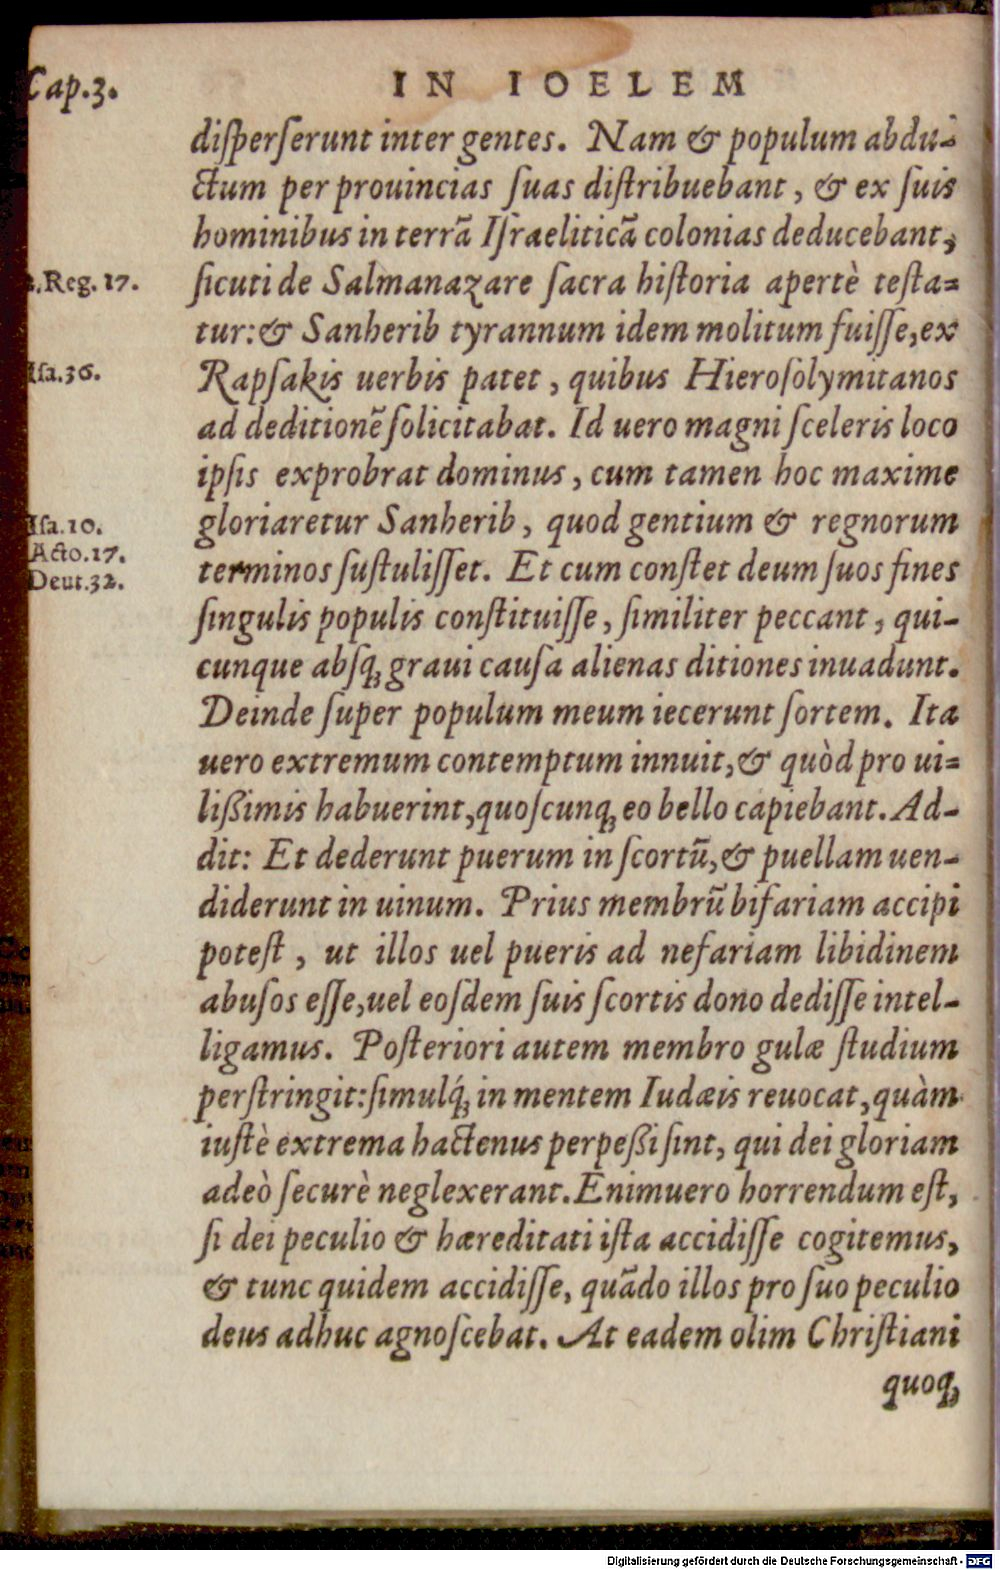 Cap.3.
IN IOELEM
diſperſerunt inter gentes. Nam & populum abdu-
ctum per prouincias ſuas diſtribuebant, & ex ſuis
hominibus in terrã Iſraeliticã colonias deducebant,
2.Reg.17.
ſicuti de Salmanazare ſacra hiſtoria apertè teſta-
tur: & Sanherib tyrannum idem molitum fuiſſe, ex
Iſa.36.
Rapſakis uerbis patet, quibus Hieroſolymitanos
ad deditionẽ ſolicitabat. Id uero magni ſceleris loco
ipſis exprobrat dominus, cum tamen hoc maxime
Iſa.10.
gloriaretur Sanherib, quod gentium & regnorum
Acto.17.
Deut.32.
terminos ſuſtuliſſet. Et cum conſtet deum ſuos fines
ſingulis populis conſtituiſſe, ſimiliter peccant, qui-
cunque abſq; graui cauſa alienas ditiones inuadunt.
Deinde ſuper populum meum iecerunt ſortem. Ita
uero extremum contemptum innuit, & quòd pro ui-
lißimis habuerint, quoſcunq; eo bello capiebant. Ad-
dit: Et dederunt puerum in ſcortũ, & puellam uen-
diderunt in uinum. Prius membrũ bifariam accipi
poteſt, ut illos uel pueris ad nefariam libidinem
abuſos eſſe, uel eoſdem ſuis ſcortis dono dediſſe intel-
ligamus. Poſteriori autem membro gulæ ſtudium
perſtringit: ſimulq́; in mentem Iudæis reuocat, quàm
iuſtè extrema hactenus perpeßi ſint, qui dei gloriam
adeò ſecurè neglexerant. Enimuero horrendum eſt,
ſi dei peculio & hæreditati iſta accidiſſe cogitemus,
& tunc quidem accidiſſe, quãdo illos pro ſuo peculio
deus adhuc agnoſcebat. At eadem olim Chriſtiani
quoq;
Digitalisierung gefördert durch die Deutsche Forschungsgemeinschaft - DFG